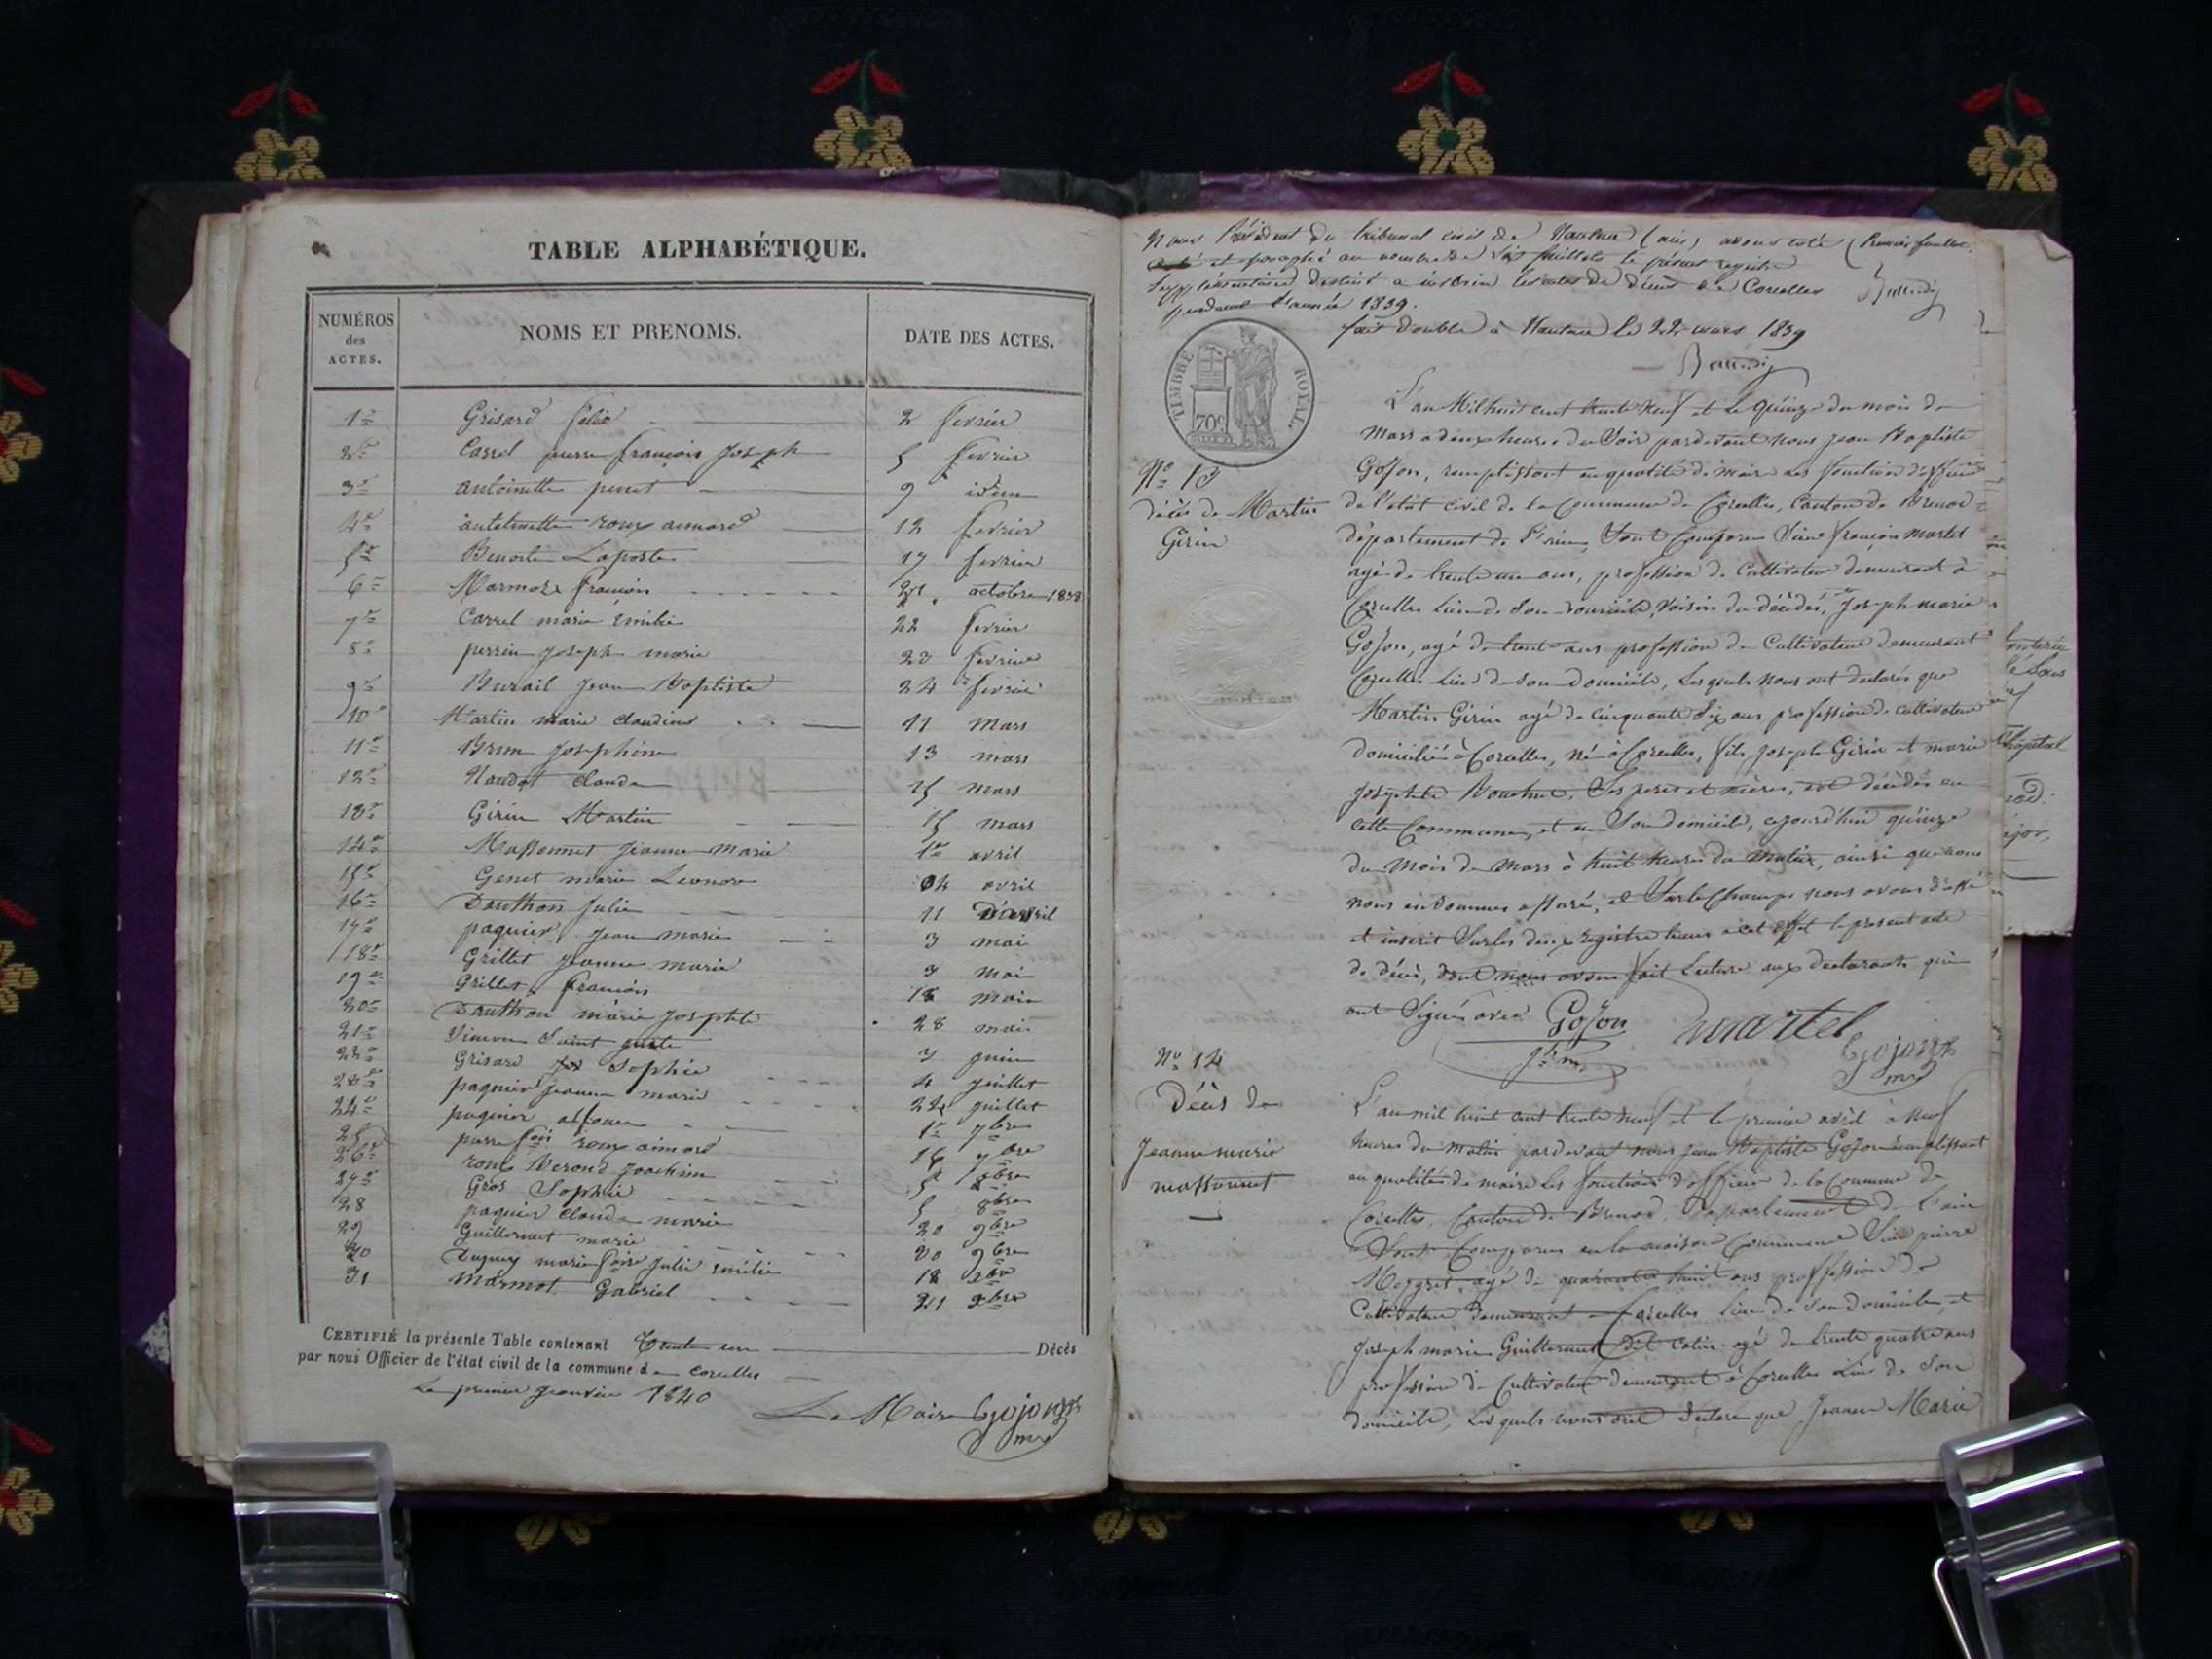 TABLE ALPHABÉTIQUE.
NUMÉROS des ACTES.
NOMS ET PRENOMS.
DATE DES ACTES.
1er Grisard félix 2 fevrier
2e Carrel pierre françois Joseph 5 fevrier
3e antoinette perret 9 idem
4e roux aimard 12 fevrier
5e Benoite Laporte 17 fevrier
6e françois octobre 1838
7e Carrel marie émilie 22 fevrier
8e perrin Joseph marie 23 fevrier
9e Burail Jean Baptiste 24 fevrier
10e Martin marie claudine 11 Mars
11e Brun Josephine 13 mars
12e Naudot claude 15 mars
13e Girin Martin 15 mars
14e Massonnet Jeanne Marie 1er avril
15e Genet marie Leonore 04 avril
16e Dauthon Julie 11 avril
17e paquier Jean marie 3 mai
18e Grillet Jeanne marie 7 mai
19e Grillet françois 18 mai
20e Dauthon marie Josephte 28 mai
21e Simon Saint juste 7 juin
22e Grisard Sophie 4 juillet
23e paquier Jeanne marie 22 juillet
24e paquier 1er 7bre
25 pierre fois roux aimard 16 7bre
26e roux Verond Joachim 5
27e Gros Sophie 5 8bre
28 paquier Claude marie 20 9bre
29 Guillermet marie 20 9bre
30 Dupuy marie Julie émilie 18
31 Marmot Gabriel 21
CERTIFIÉ la présente Table contenant trente un Décès
par nous Officier de l'état civil de la commune de corcelles
Le premier Janvier 1840
Le Maire Gojon
Nous Président du tribunal civil de Nantua (ain) avons coté
et paraphé au nombre de six feuillets le présent registre
supplémentaire destiné a inscrire les actes de décès de Corcelles
pendant l'année 1839.
premier feuillet
fait double à Nantua le 22 mars 1839
TIMBRE ROYAL.
70c
No 13
décès de Martin
Girin
L'an Mil huit cent trente Neuf et le quinze du mois de
Mars a deux heures du Soir pardevant Nous Jean Baptiste
Gojon, remplissant en qualité de maire les fonctions d'officier
de l'état civil de la Commune de Corcelles, Canton de Brenod
département de l'ain, Sont Comparus Sieur françois martel
agé de trente un ans, profession de Cultivateur demeurant à
Corcelles Lieu de Son domicile, voisin du décédé, et Joseph marie
Gojon, agé de trente ans profession de Cultivateur demeurant
Corcelles Lieu de son Domicile, Lesquels Nous ont declarés que
Martin Girin agé de cinquante Six ans profession de cultivateur
domicilié à Corcelles, né à Corcelles, fils Joseph Girin et marie
Josephte Ses pere et mère, est décédés en
cette Commune, et en Son domicile, cejourd'hui quinze
du Mois de Mars à huit heures du Matin, ainsi que nous
nous en sommes assuré, et Sur le Champ nous avons
et inscrit Sur les deux registre tenus a cet effet le present acte
de décès, dont nous avons fait Lecture aux declarants qui
ont Signés avec
Gojon martel
Gojon
No 14
Décès de
Jeanne marie
massonnet
L'an mil huit cent trente neuf et le premier avril à Neuf
heures du Matin pardevant nous Jean Baptiste Gojon remplissant
en qualité de maire les fonctions d'officier de la Commune de
Corcelles, Canton de Brenod, Departement de L'ain
Sont Comparus en la maison Commune Sieur pierre
agé de quarante huit ans proffession de
Cultivateur demeurant a Corcelles lieu de Son domicile, et
Joseph marie Guillermet dit colin agé de trente quatre ans
profession de Cultivateur demeurant à Corcelles Lieu de Son
domicile, Lesquels nous ont declaré que Jeanne Marie